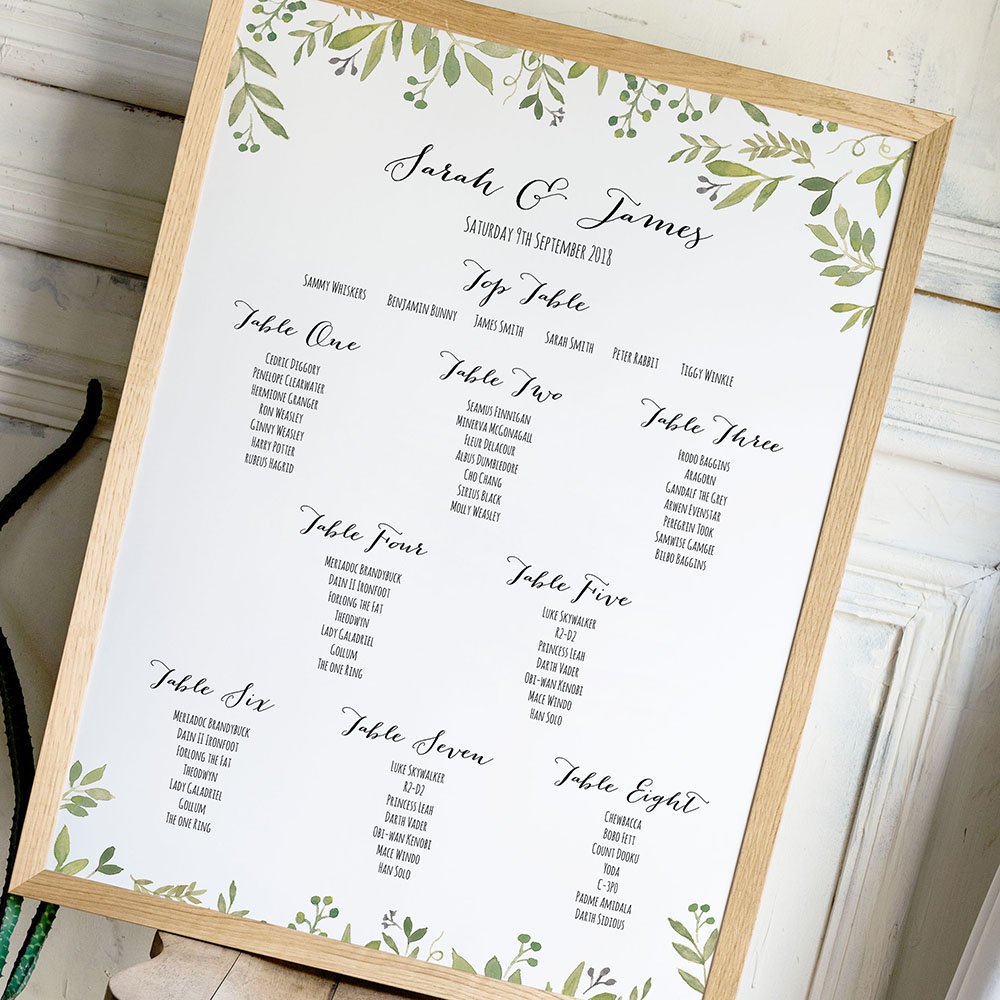 Sarah & James
Saturday 9th September 2018
Top Table
Sammy Whiskers Benjamin Bunny James Smith Sarah Smith Peter Rabbit Tiggy Winkle
Table One
Cedric Diggory
Penelope Clearwater
Hermione Granger
Ron Weasley
Ginny Weasley
Harry Potter
Rubeus Hagrid
Table Two
Seamus Finnigan
Minerva McGonagall
Fleur Delacour
Albus Dumbledore
Cho Chang
Sirius Black
Molly Weasley
Table Three
Frodo Baggins
Aragorn
Gandalf the Grey
Arwen Evenstar
Peregrin Took
Samwise Gamgee
Bilbo Baggins
Table Four
Meriadoc Brandybuck
Dain II Ironfoot
Forlong the Fat
Theodwyn
Lady Galadriel
Gollum
The one Ring
Table Five
Luke Skywalker
R2-D2
Princess Leah
Darth Vader
Obi-wan Kenobi
Mace Windo
Han Solo
Table Six
Meriadoc Brandybuck
Dain II Ironfoot
Forlong the Fat
Theodwyn
Lady Galadriel
Gollum
The one Ring
Table Seven
Luke Skywalker
R2-D2
Princess Leah
Darth Vader
Obi-wan Kenobi
Mace Windo
Han Solo
Table Eight
Chewbacca
Bobo Fett
Count Dooku
Yoda
C-3PO
Padme Amidala
Darth Sidious